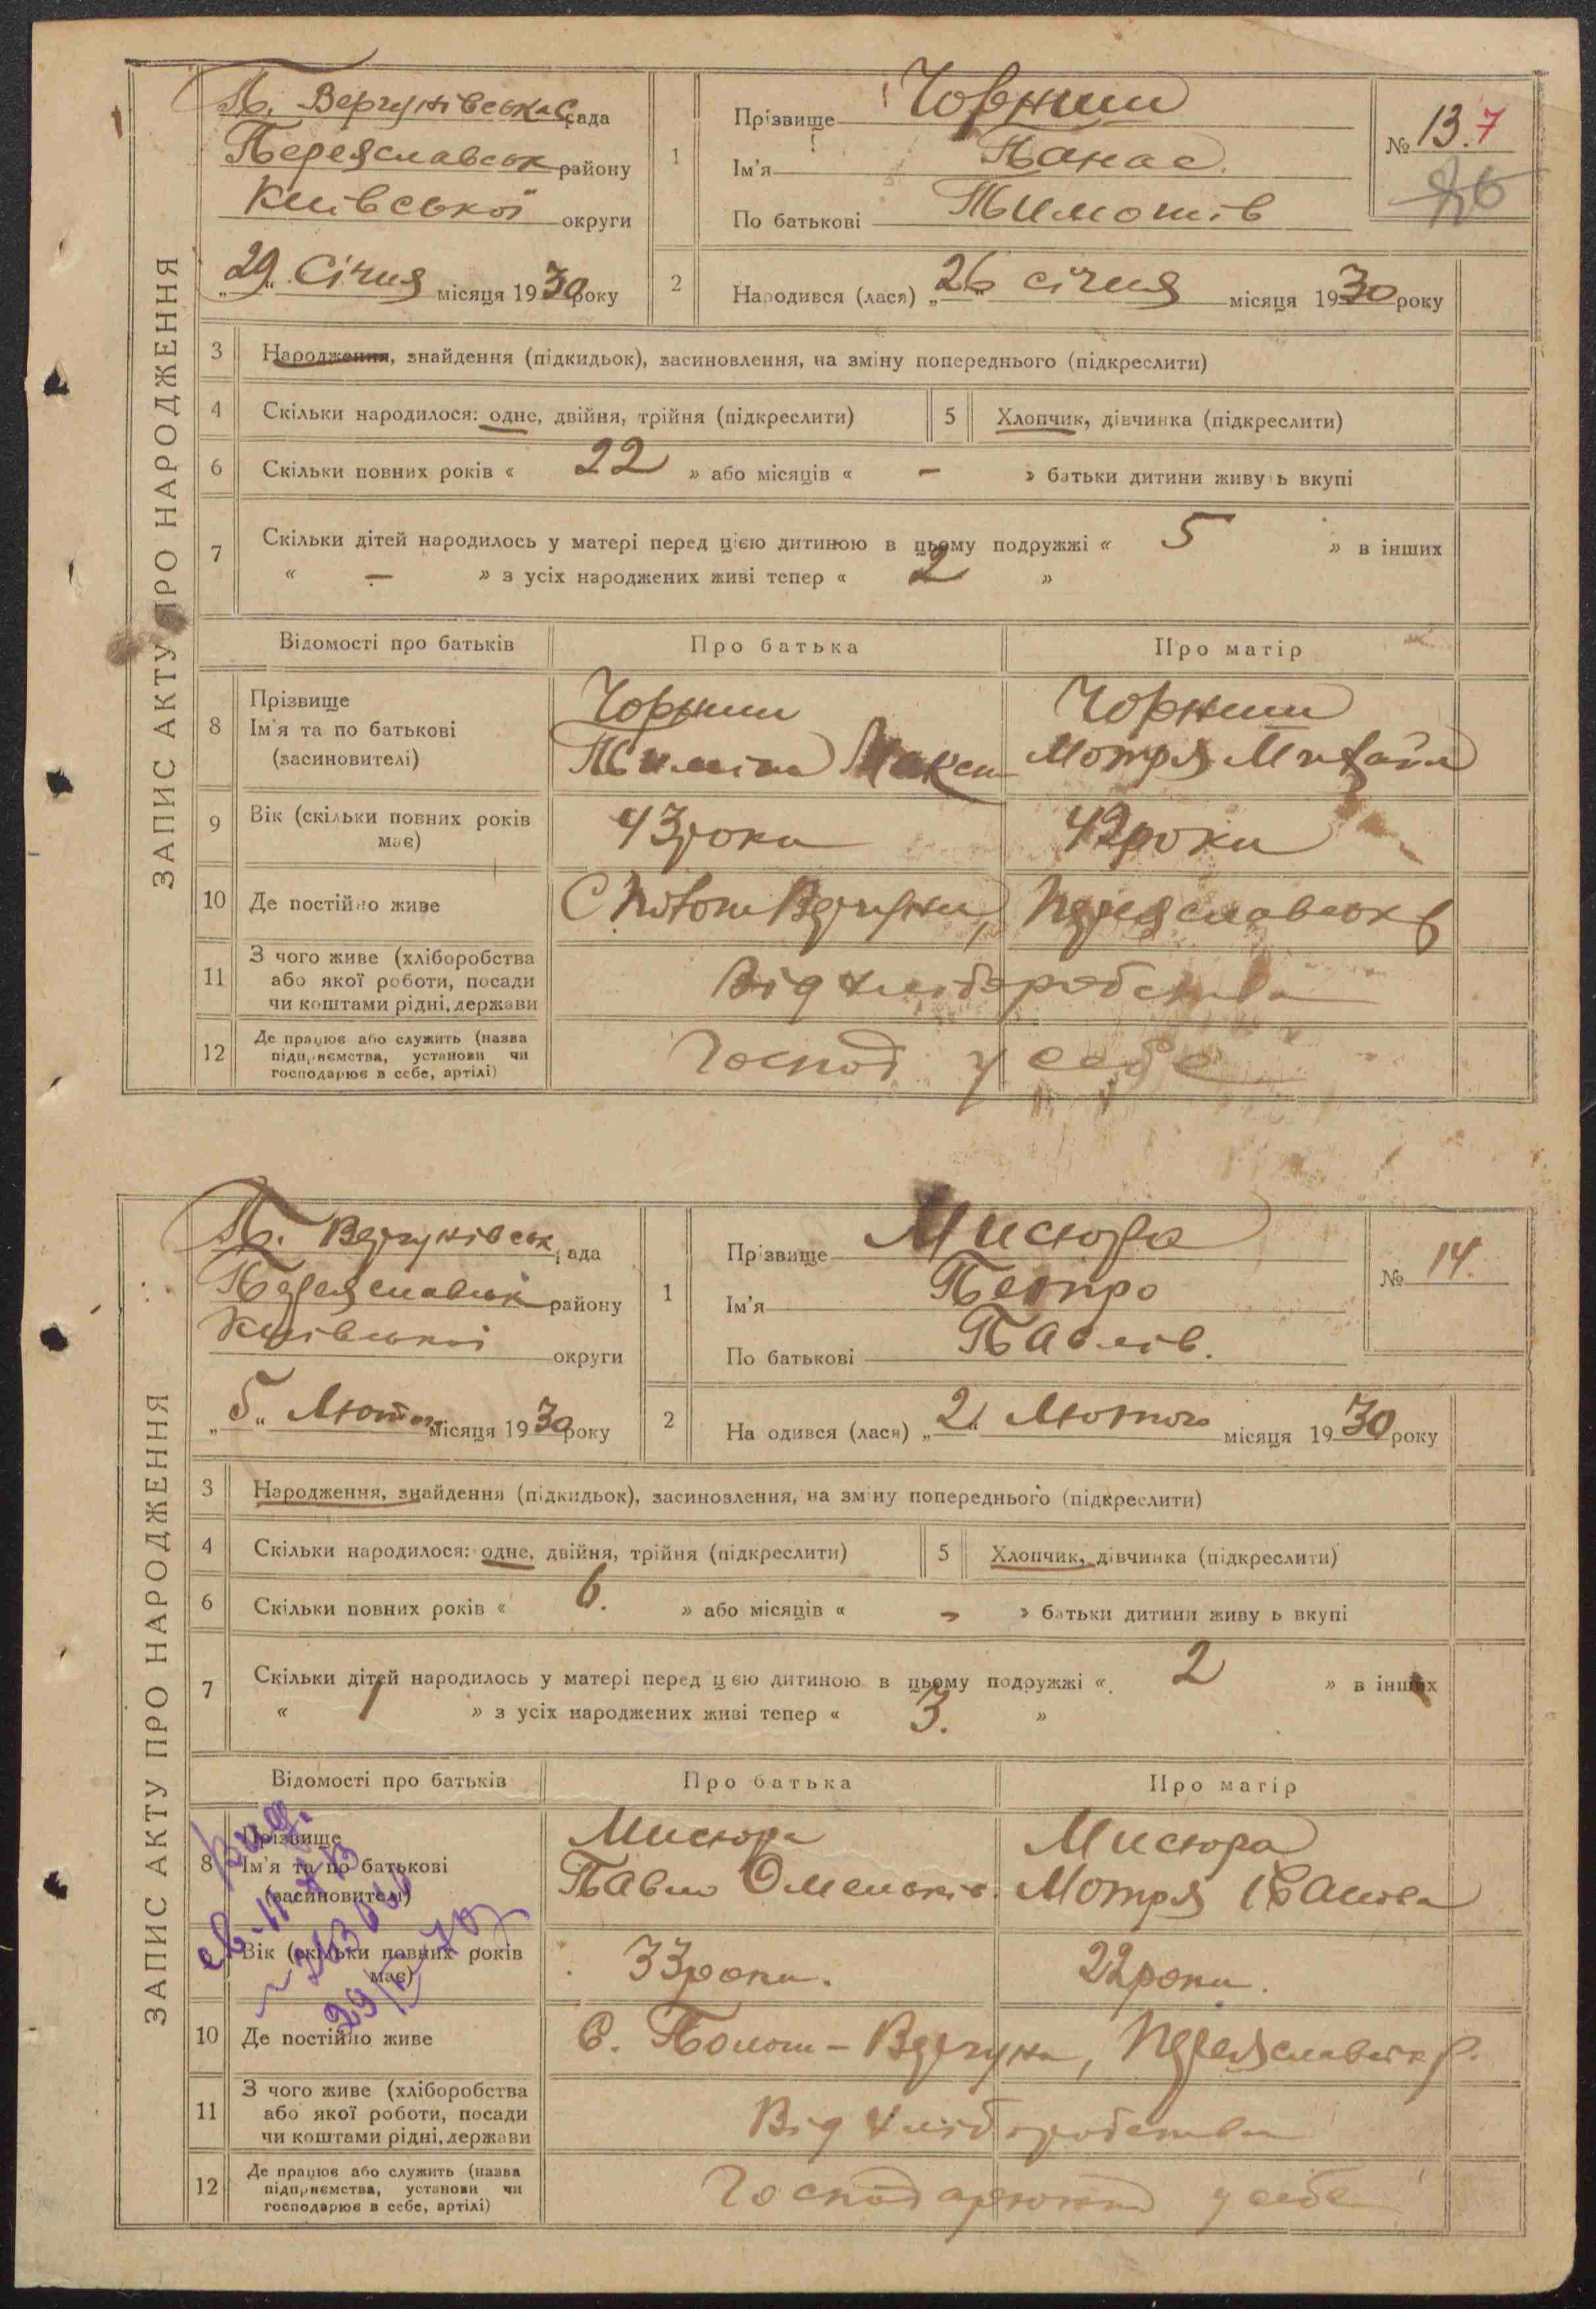 ЗАПИС АКТУ ПРО НАРОДЖЕННЯ
П. Вергунівська с. рада
Переяславськ району
Київської округи
„29„ Січня місяця 1930 року
1
Прізвище Чорниш
Ім'я Панас.
По батькові Тимошів
№ 13. 7
2
Народився (лася) „26„ січня місяця 1930 року
3 Народження, знайдення (підкидьок), засиновлення, на зміну попереднього (підкреслити)
4 Скільки народилося: одне, двійня, трійня (підкреслити)
5 Хлопчик, дівчинка (підкреслити)
6 Скільки повних років « 22 » або місяців « – » батьки дитини живу ь вкупі
7 Скільки дітей народилось у матері перед цією дитиною в цьому подружжі « 5 » в інших
« – » з усіх народжених живі тепер « 2 »
Відомості про батьків Про батька Про матір
8 Прізвище
Ім'я та по батькові
(засиновителі)
Чорниш
Тиміш Максим
Чорниш
Мотря Михайл
9 Вік (скільки повних років
має)
43 роки
42 роки
10 Де постійно живе
С. Полог Вергуни, Переяславськ р
11 З чого живе (хліборобства
або якої роботи, посади
чи коштами рідні, держави
Від хліборобства
12 Де працює або служить (назва
підприємства, установи чи
господарює в себе, артілі)
Господ у себе
ЗАПИС АКТУ ПРО НАРОДЖЕННЯ
П. Вергунівськ рада
Переяславськ району
Київської округи
„5„ Лютого місяця 1930 року
1
Прізвище Мисюра
Ім'я Петро
По батькові Павлів.
№ 14.
2
На одився (лася) „2„ Лютого місяця 1930 року
3 Народження, знайдення (підкидьок), засиновлення, на зміну попереднього (підкреслити)
4 Скільки народилося: одне, двійня, трійня (підкреслити)
5 Хлопчик, дівчинка (підкреслити)
6 Скільки повних років « 6. » або місяців « – » батьки дитини живу ь вкупі
7 Скільки дітей народилось у матері перед цією дитиною в цьому подружжі « 2 » в інших
« 1 » з усіх народжених живі тепер « 3. »
Відомості про батьків Про батька Про матір
8 Прізвище
Ім'я та по батькові
(засиновителі)
Мисюра
Павло Омельків.
Мисюра
Мотря Іванова
9 Вік (скільки повних років
має)
33 роки.
22 роки.
10 Де постійно живе
С. Полог – Вергуни, Переяславськ р.
11 З чого живе (хліборобства
або якої роботи, посади
чи коштами рідні, держави
Від хліборобства
12 Де працює або служить (назва
підприємства, установи чи
господарює в себе, артілі)
Господарюють у себе